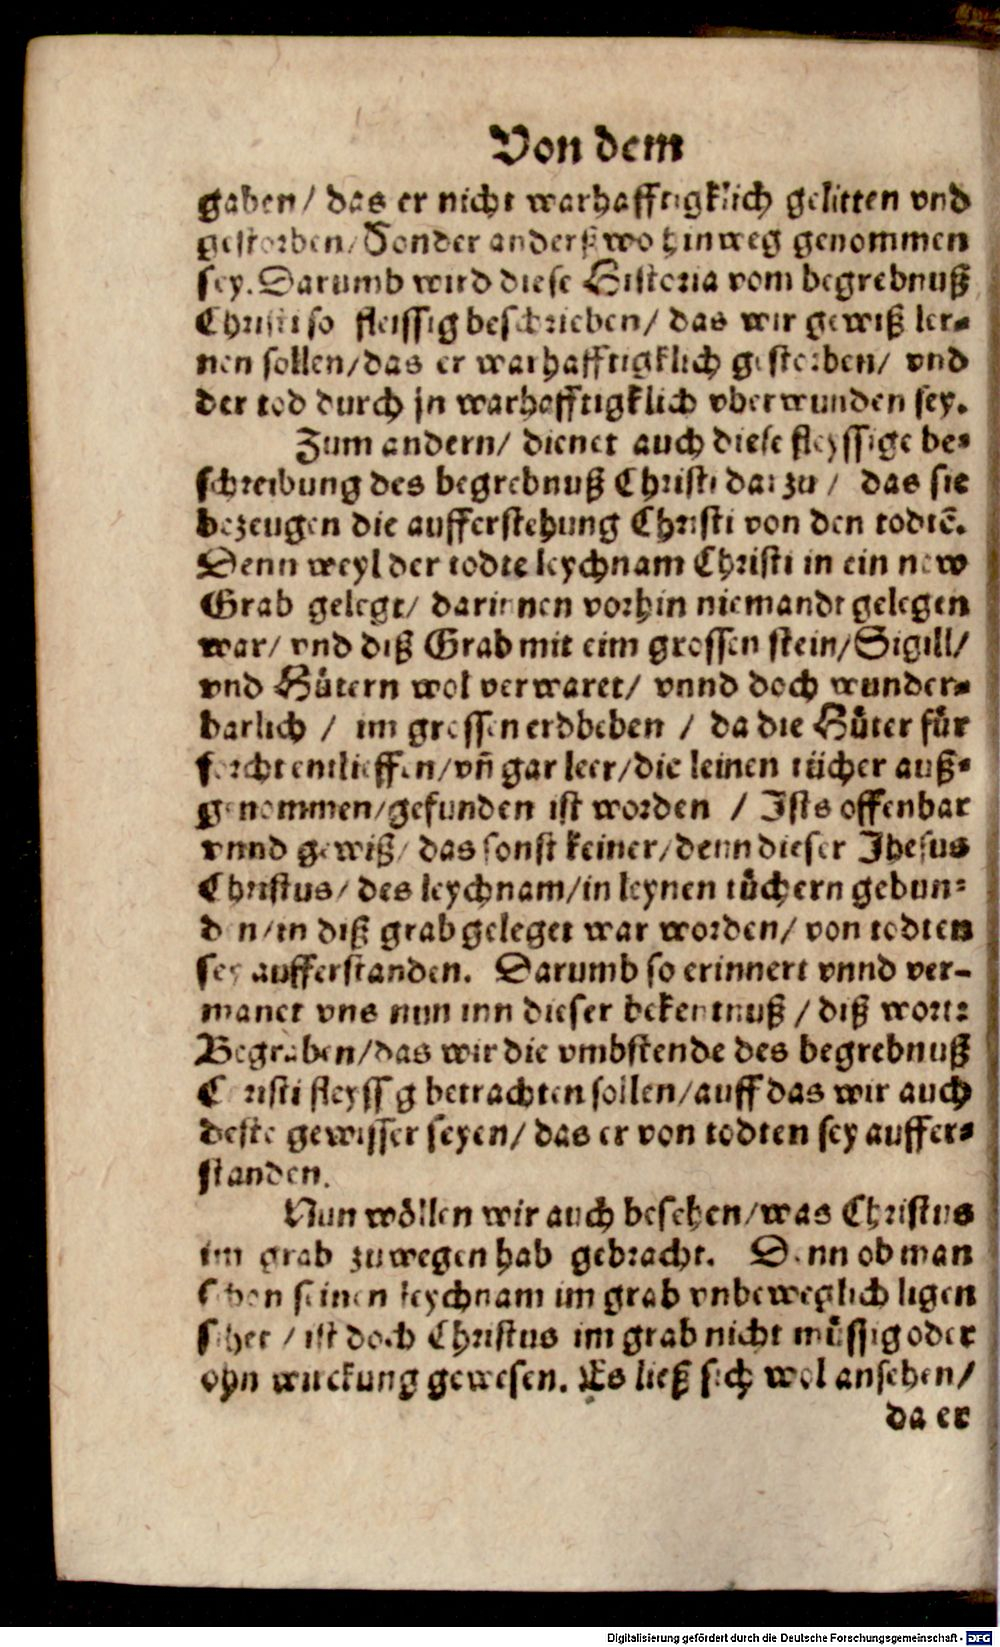 Von dem
gaben/ das er nicht warhafftigklich gelitten vnd
gestorben/ Sonder anderßwo hinweg genommen
sey. Darumb wird diese Historia vom begrebnuß
Christi so fleissig beschrieben/ das wir gewiß ler-
nen sollen/das er warhafftigklich gestorben/ vnd
der tod durch jn warhafftigklich vberwunden sey.
Zum andern/ dienet auch diese fleyssige be-
schreibung des begrebnuß Christi darzu / das sie
bezeugen die aufferstehung Christi von den todtē.
Denn weyl der todte leychnam Christi in ein new
Grab gelegt/ darinnen vorhin niemandt gelegen
war/ vnd diß Grab mit eim grossen stein/Sigill/
vnd Hütern wol verwaret/ vnnd doch wunder-
barlich / im grossen erdbeben / da die Hüter für
forcht entlieffen/vñ gar leer/die leinen tücher auß-
genommen/gefunden ist worden / Ists offenbar
vnnd gewiß/ das sonst keiner/denn dieser Jhesus
Christus/ des leychnam/in leynen tüchern gebun-
den/in diß grab geleget war worden/ von todten
sey aufferstanden. Darumb so erinnert vnnd ver-
manet vns nun inn dieser bekentnuß / diß wort:
Begraben/das wir die vmbstende des begrebnuß
Christi fleyssig betrachten sollen/auff das wir auch
deste gewisser seyen/ das er von todten sey auffer-
standen.
Nun wöllen wir auch besehen/was Christus
im grab zuwegen hab gebracht. Denn ob man
schon seinen leychnam im grab vnbeweglich ligen
sihet / ist doch Christus im grab nicht müssig oder
ohn wirckung gewesen. Es ließ sich wol ansehen/
da er
Digitalisierung gefördert durch die Deutsche Forschungsgemeinschaft - DFG